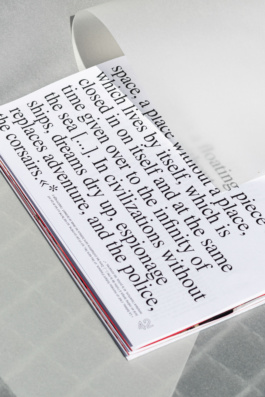 floating piece
space, a place without a place,
which lives by itself, which is
closed in on itself and at the same
time given over to the infinity of
the sea [...]. In civilizations without
ships, dreams dry up, espionage
replaces adventure, and the police,
the corsairs.«*
42